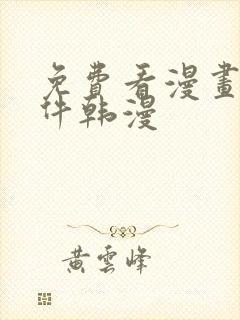 免費看漫畫
件韩漫
黃雲峰